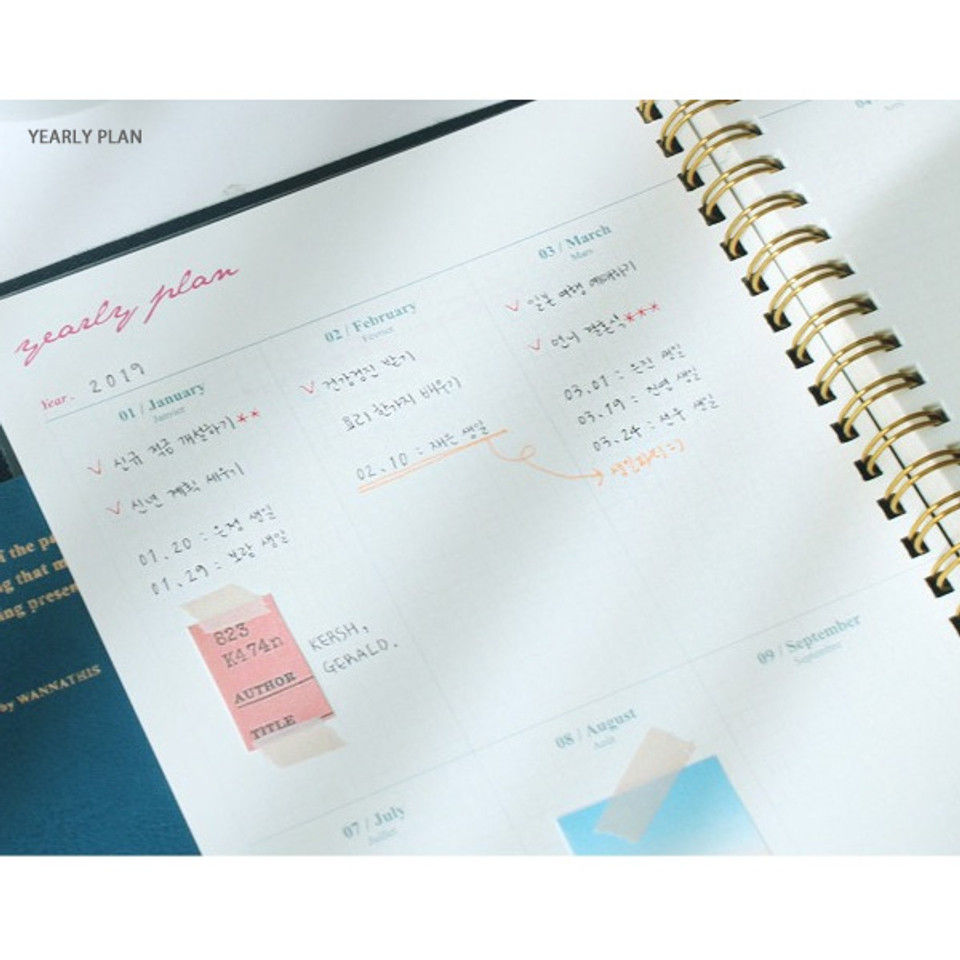 YEARLY PLAN
yearly plan
Year. 2019
01 / January
Janvier
신규 적금 개설하기**
신년 계획 세우기
01.20 : 은정 생일
01.29 : 보람 생일
823
K474n
AUTHOR
TITLE
KERSH,
GERALD.
02 / February
Février
건강검진 받기
요리 한가지 배우기
02.10 : 재은 생일
03 / March
Mars
일본 여행 예매하기
언니 결혼식***
03.01 : 은진 생일
03.19 : 진영 생일
03.24 : 선우 생일
생일파티 :)
04
07 / July
Juillet
08 / August
Août
09 / September
Septembre
f the pa
ng that m
ing presen
by WANNATHIS